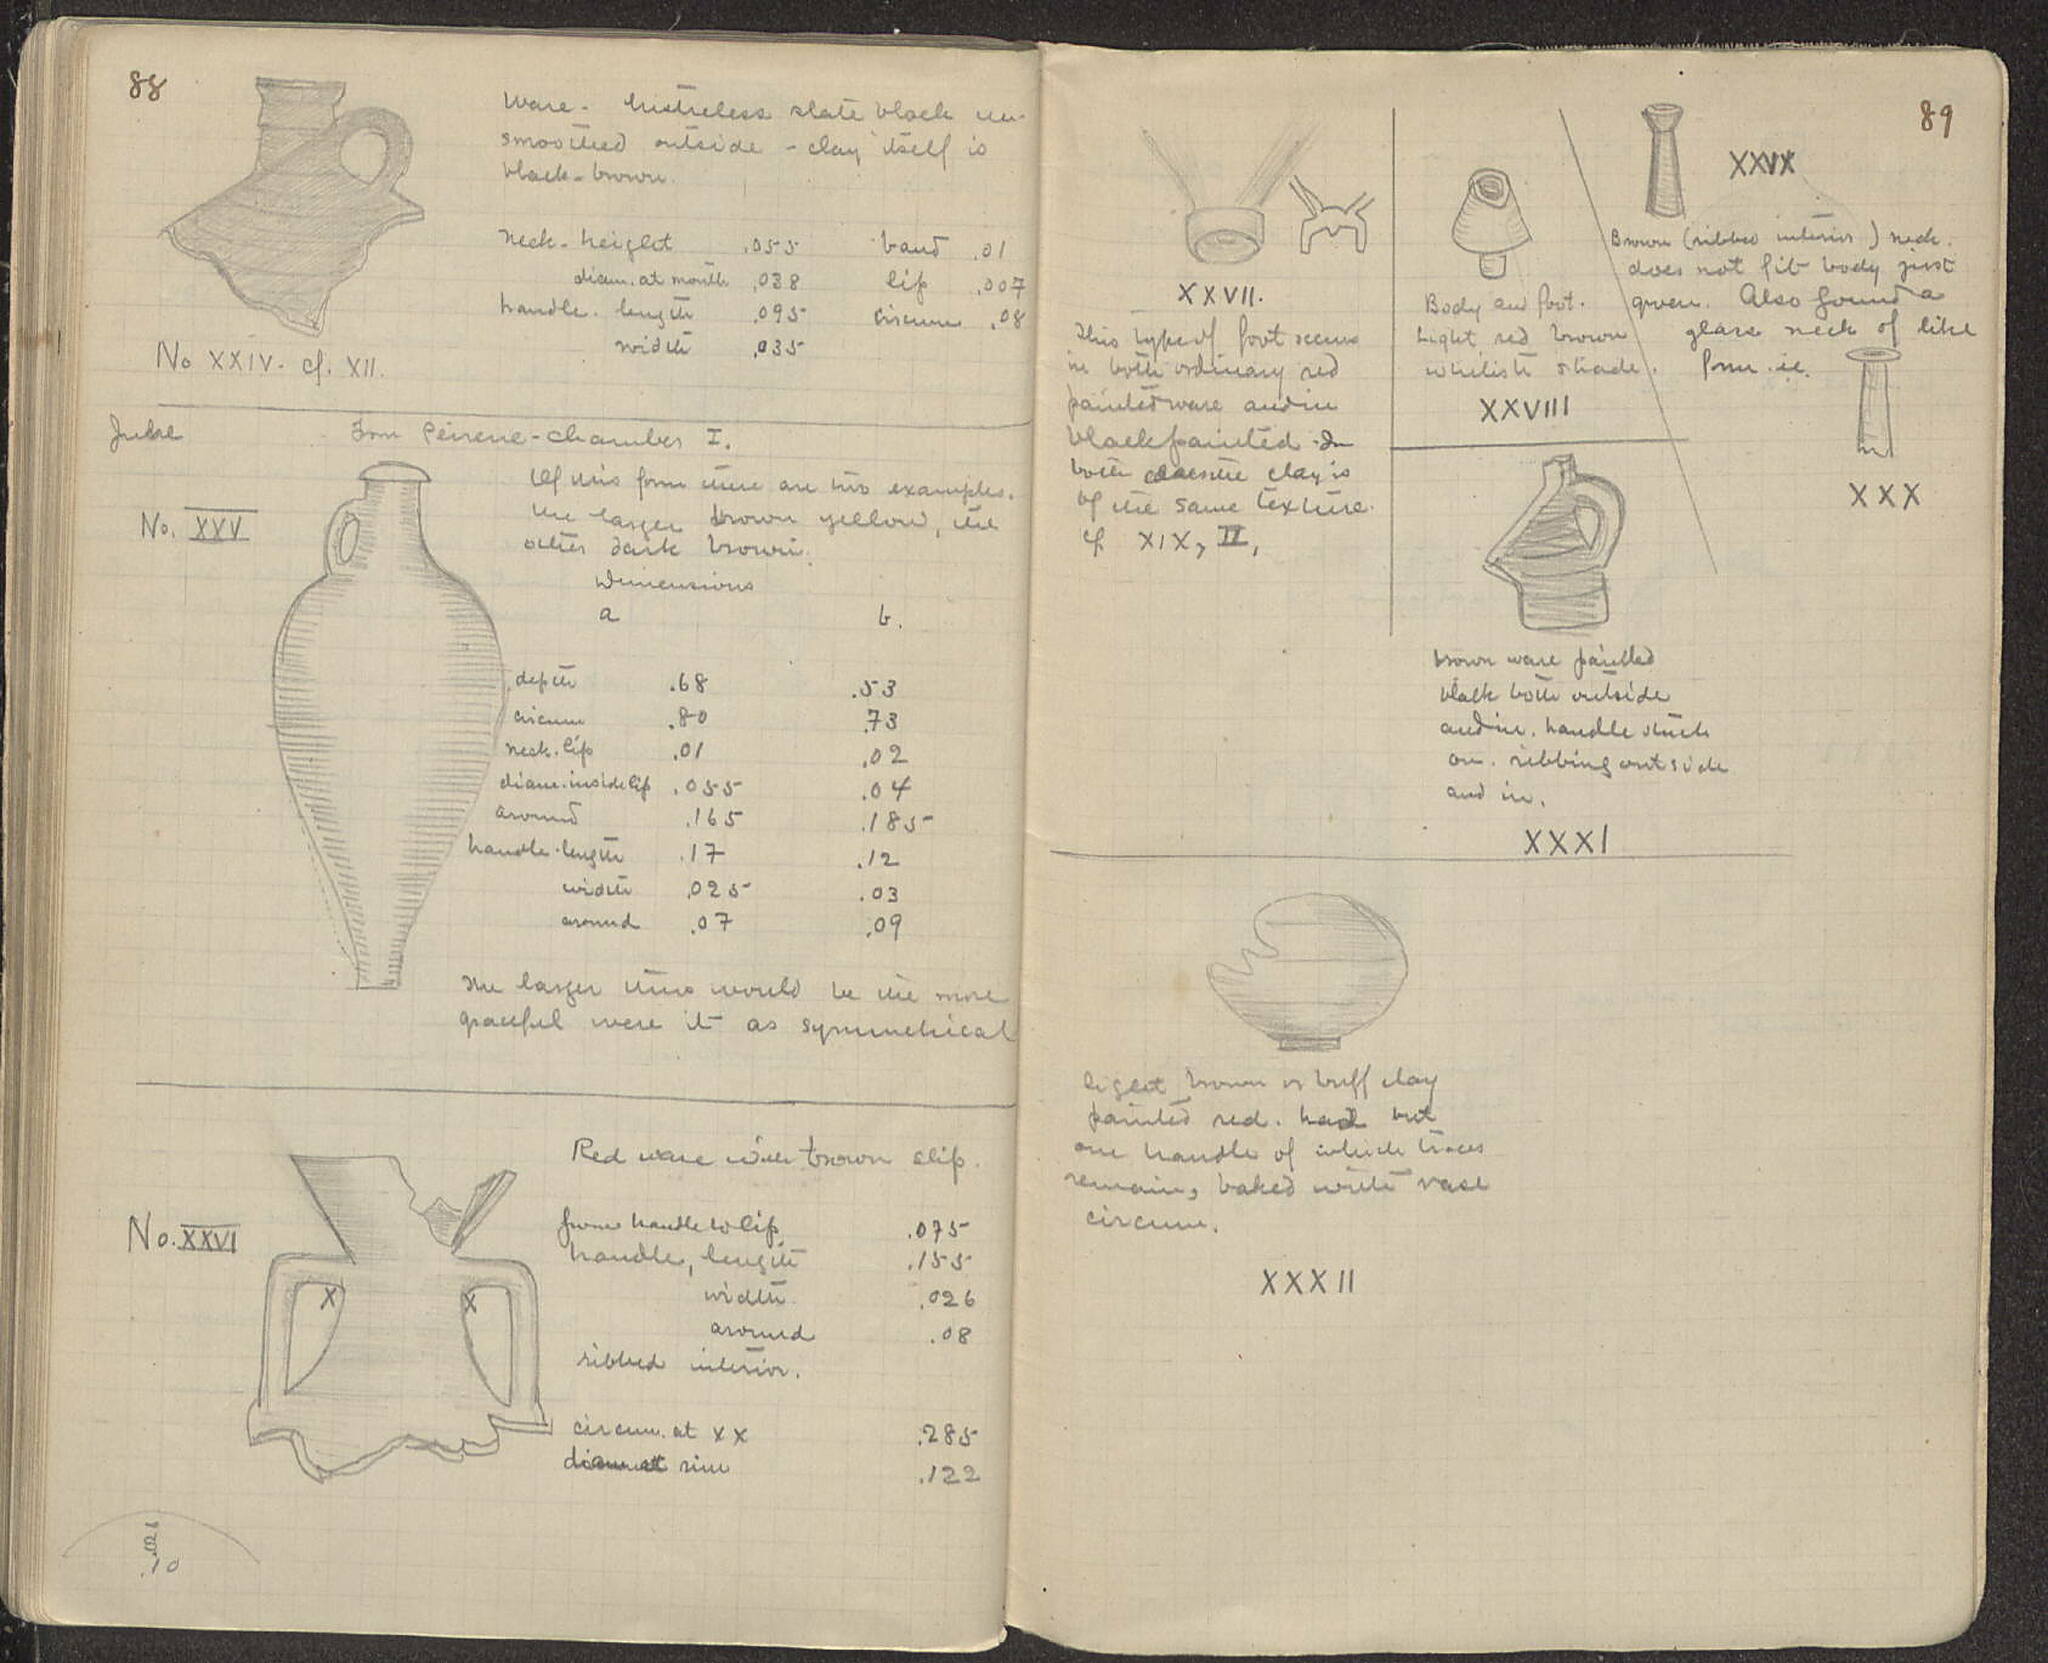 88
Ware - lustreless slate black un-
smoothed outside - clay itself is
black-brown.
neck - height .055 band .01
diam. at mouth .038 lip .007
handle - length .095 circum .08
width .035
No XXIV. cf. XII.
From Peirene - Chamber I.
No. XXV
Of this form there are two examples.
the larger brown yellow, the
other dark brown.
Dimensions
a b.
depth .68 .53
circum .80 .73
neck. lip .01 .02
diam. inside lip .055 .04
around .165 .185
handle. length .17 .12
width .025 .03
around .07 .09
The larger would be the more
graceful were it as symmetrical
No. XXVI
Red ware with brown slip.
from handle to lip .075
handle, length .155
width .026
around .08
ribbed interior.
circum. at XX .285
diam at rim .122
.10
89
XXVII.
This type of foot occurs
in both ordinary red
painted ware and in
black painted - In
both the clay is
of the same texture.
cf XIX, II,
Body and foot.
Light red brown
whitish shade.
XXVIII
XXVX
Brown (ribbed interior) neck.
does not fit body just
given. Also found a
glass neck of like
form. ie.
XXX
brown ware painted
black both outside
and in. handle stuck
on. ribbing outside
and in.
XXXI
light brown or buff clay
painted red. had but
one handle of which traces
remain, baked with vase
circum.
XXXII